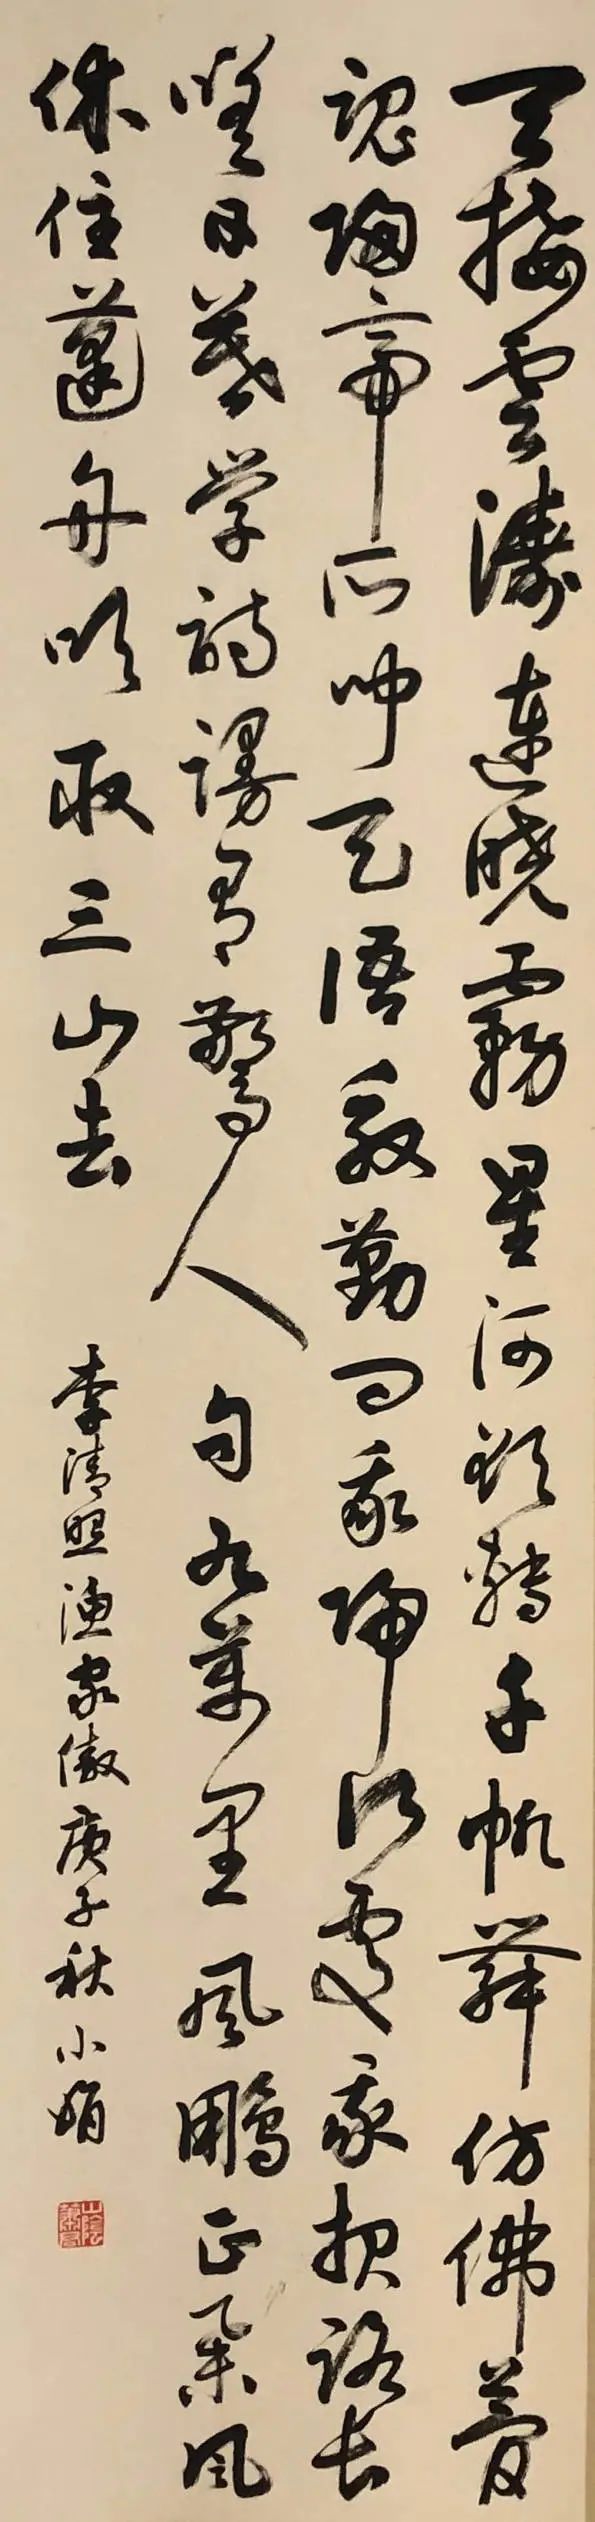 天接雲濤連曉霧星河欲轉千帆舞仿佛夢
魂歸帝所聞天語殷勤问我歸何處我报路长
嗟日暮学詩謾有驚人句九萬里風鵬正舉風
休住蓬舟吹取三山去
李清照漁家傲庚子秋小娟